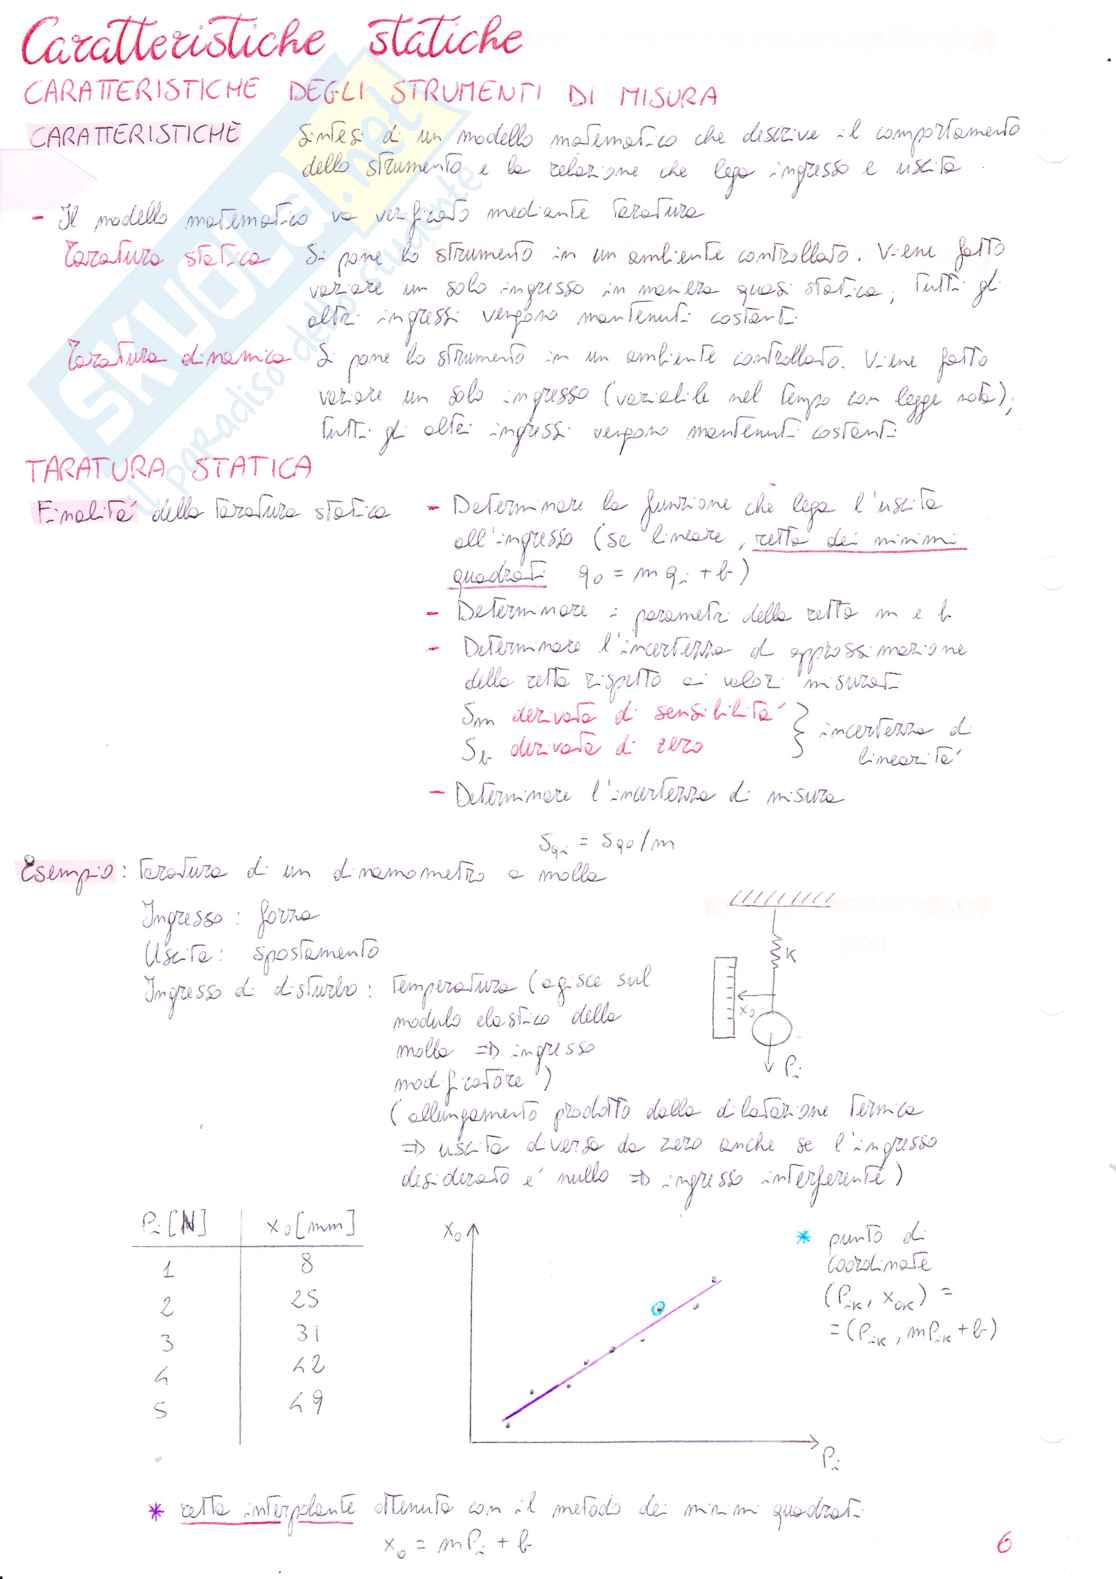 Caratteristiche statiche
CARATTERISTICHE DEGLI STRUMENTI DI MISURA
CARATTERISTICHE Sintesi di un modello matematico che descrive il comportamento
dello strumento e la relazione che lega ingresso e uscita.
- Il modello matematico va verificato mediante taratura
Taratura statica Si pone lo strumento in un ambiente controllato. Viene fatto
variare un solo ingresso in maniera quasi statica; tutti gli
altri ingressi vengono mantenuti costanti.
Taratura dinamica Si pone lo strumento in un ambiente controllato. Viene fatto
variare un solo ingresso (variabile nel tempo con legge nota);
tutti gli altri ingressi vengono mantenuti costanti
TARATURA STATICA
Finalità della taratura statica - Determinare la funzione che lega l'uscita
all'ingresso (se lineare, retta dei minimi
quadrati q0 = m qi + b)
- Determinare i parametri della retta m e b
- Determinare l'incertezza di approssimazione
della retta rispetto ai valori misurati
Sm derivata di sensibilità } incertezza di
Sb derivata di zero linearità
- Determinare l'incertezza di misura
Sqi = Sq0/m
Esempio: taratura di un dinamometro a molla
Ingresso: forza
Uscita: spostamento
Ingresso di disturbo: temperatura (agisce sul
modulo elastico della
molla => ingresso
modificatore)
(allungamento prodotto dalla dilatazione termica
=> uscita diversa da zero anche se l'ingresso
desiderato è nullo => ingresso interferente)
K
x0
Pi
Pi [N] x0 [mm]
1 8
2 25
3 31
4 42
5 49
x0
Pi
* punto di
coordinate
(Pik, x0k) =
= (Pik, mPik + b)
* retta interpolante ottenuta con il metodo dei minimi quadrati
x0 = mPi + b
6
SKUOLA.net
il paradiso dello studente